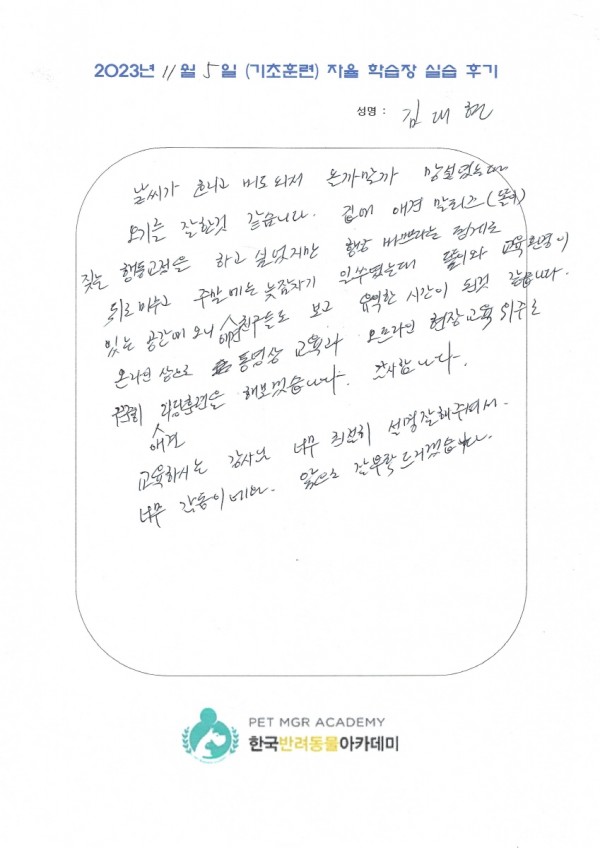 2023년 11월 5일 (기초훈련) 자율 학습장 실습 후기
성명 : 김대현
날씨가 흐리고 비도 와서 올까말까 망설였는데
오기를 잘한것 같습니다. 집에 애견 말티즈
짖는 행동교정을 하고 싶었지만 항상 바쁘다는 핑계로
뒤로 미루고 주말에는 늦잠자기 일쑤였는데 교육환경이
있는 공간에 오니 애견친구들도 보고 유익한 시간이 된것 같습니다.
온라인 상으로 동영상 교육과 오프라인 현장교육 위주로
애견 훈련을 해보겠습니다. 감사합니다.
교육하시는 강사님 너무 친절히 설명잘해주셔서.
너무 감동이네요. 앞으로 잘부탁드리겠습니다.
PET MGR ACADEMY
한국반려동물아카데미